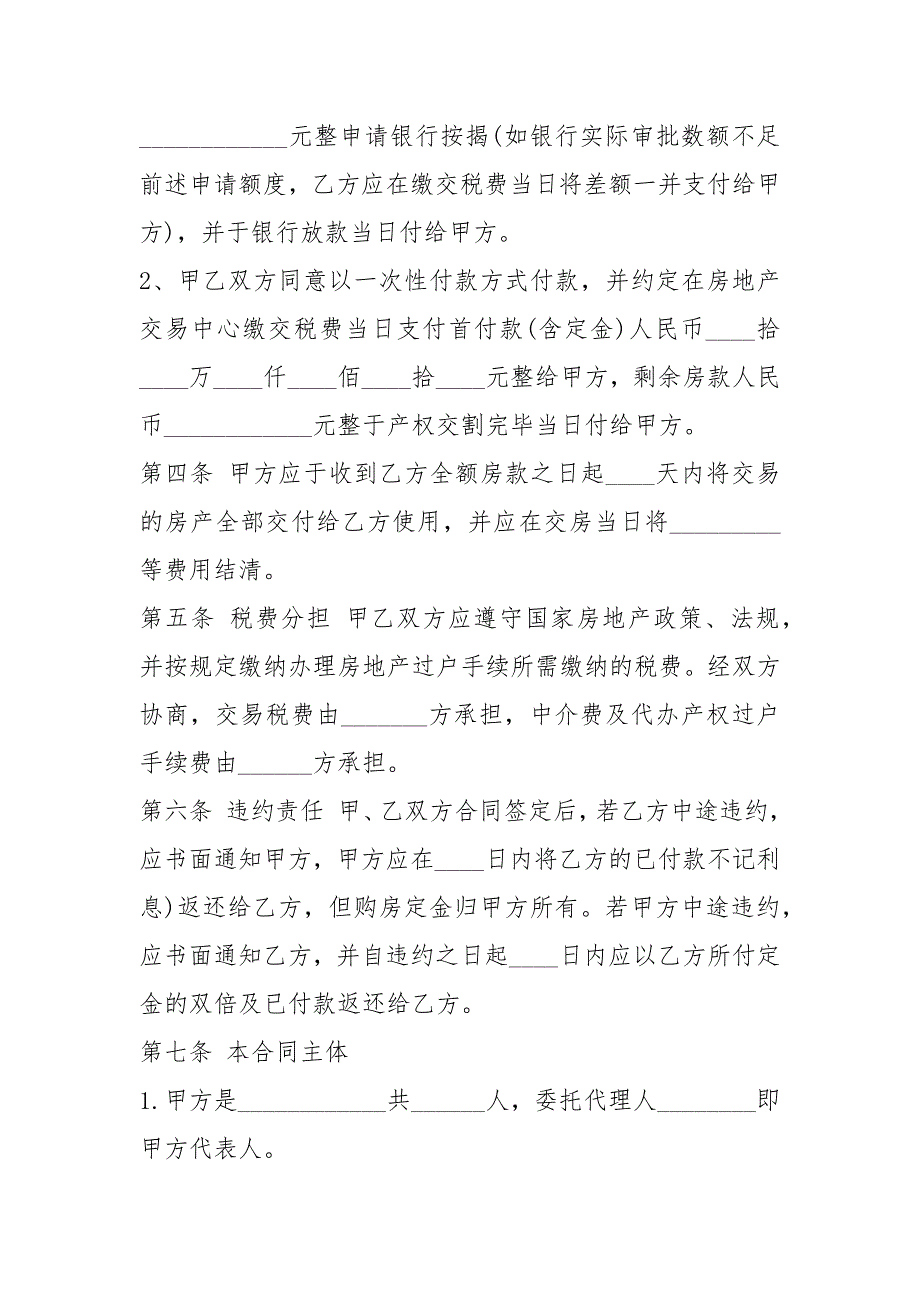 ____________元整申请银行按揭(如银行实际审批数额不足
前述申请额度，乙方应在缴交税费当日将差额一并支付给甲
方)，并于银行放款当日付给甲方。
2、甲乙双方同意以一次性付款方式付款，并约定在房地产
交易中心缴交税费当日支付首付款(含定金)人民币____拾
____万____仟____佰____拾____元整给甲方，剩余房款人民
币____________元整于产权交割完毕当日付给甲方。
第四条 甲方应于收到乙方全额房款之日起____天内将交易
的房产全部交付给乙方使用，并应在交房当日将_________
等费用结清。
第五条 税费分担 甲乙双方应遵守国家房地产政策、法规，
并按规定缴纳办理房地产过户手续所需缴纳的税费。经双方
协商，交易税费由_______方承担，中介费及代办产权过户
手续费由______方承担。
第六条 违约责任 甲、乙双方合同签定后，若乙方中途违约，
应书面通知甲方，甲方应在____日内将乙方的已付款不记利
息)返还给乙方，但购房定金归甲方所有。若甲方中途违约，
应书面通知乙方，并自违约之日起____日内应以乙方所付定
金的双倍及已付款返还给乙方。
第七条 本合同主体
1.甲方是____________共______人，委托代理人________即
甲方代表人。